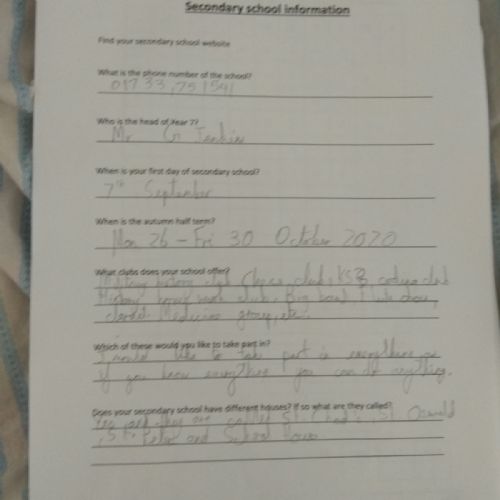 Secondary school information
Find your secondary school website
What is the phone number of the school?
01733,751541
Who is the head of Year 7?
Mr G Jenkins
When is your first day of secondary school?
7th September
When is the autumn half term?
Mon 26 - Fri 30 October 2020
What clubs does your school offer?
Military history club, Chess club, KS3 coding club
History homework club,
Medicine group, etc.
Which of these would you like to take part in?
I would like to take part in everything as
if you know everything you can do anything.
Does your secondary school have different houses? If so what are they called?
Yes and they are called St Chad's, St Oswald
, St Peter and School House